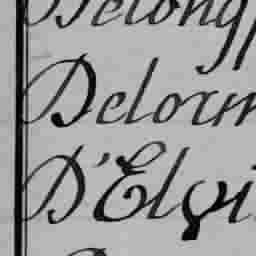 Delong
Delorm
D'Elvi